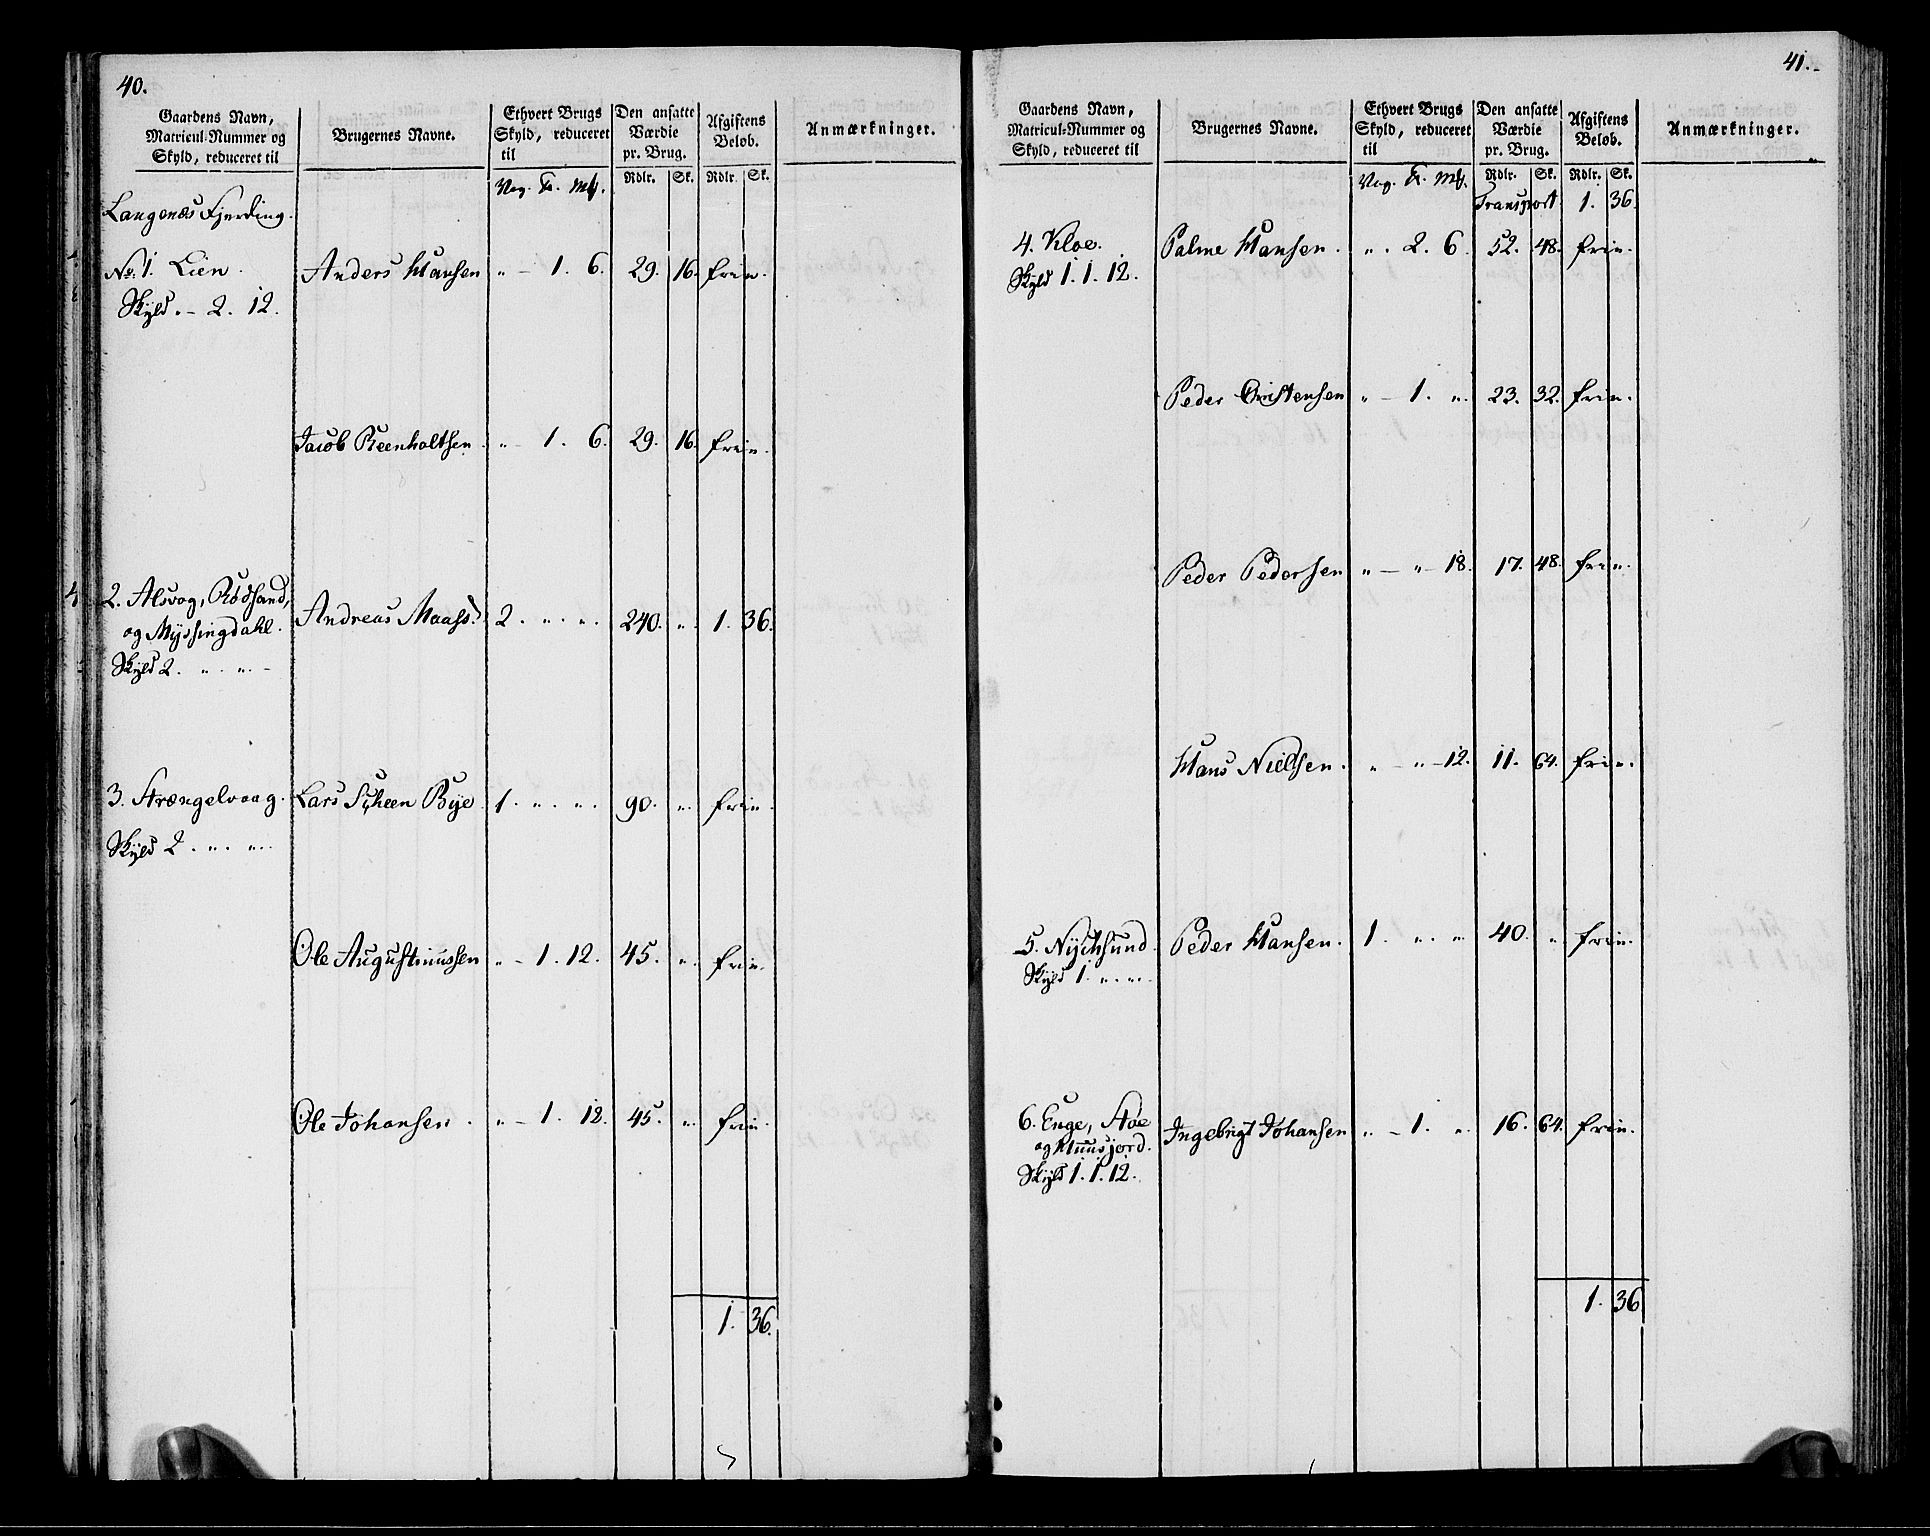 40.
Gaardens Navn, Matricul-Nummer og Skyld, reduceret til
Brugernes Navne.
Ethvert Brugs Skyld, reduceret til
Den ansatte Værdie pr. Brug.
Afgiftens Beløb.
Anmærkninger.
Vog. Mk. Rdlr. Sk. Rdlr. Sk.
Langenæs Fjerding.
No. 1. Lien. Anders Hansen „ – 1. 6. 29. 16. frie.
Skyld „ – 2. 12.
Jacob Reenholtsen. „ – 1. 6. 29. 16. frie.
2. Alsvog, Rødsand, Andreas Maass. 2. „ „ 240. „ 1. 36.
og Myssingdahl.
Skyld 2. „ „ –
3. Strængelvaag. Lars Scheen Bye 1. „ „ 90. „ frie.
Skyld 2. „ „
Ole Augustinussen „ – 1. 12. 45. „ frie.
Ole Johansen. „ – 1. 12. 45. „ frie.
1. 36.
41.
Gaardens Navn, Matricul-Nummer og Skyld, reduceret til
Brugernes Navne.
Ethvert Brugs Skyld, reduceret til
Den ansatte Værdie pr. Brug.
Afgiftens Beløb.
Anmærkninger.
Vog. Mk. Rdlr. Sk. Rdlr. Sk.
Transport 1. 36.
4. Kloe. Palme Hansen. „ 2. 6. 52. 48. frie.
Skyld 1. 1. 12.
Peder Cristensen „ – 1. „ 23. 32. frie.
Peder Pedersen „ – „ – 18. 17. 48. frie.
Hans Nielsen. „ – „ – 12. 11. 64. frie.
5. Nychsund. Peder Hansen. 1. „ „ 40. „ frie.
Skyld 1. „ „
6. Enge, Støe Ingebrigt Johansen „ – 1. „ 16. 64. frie.
og Klunsjord.
Skyld 1. 1. 12.
1. 36